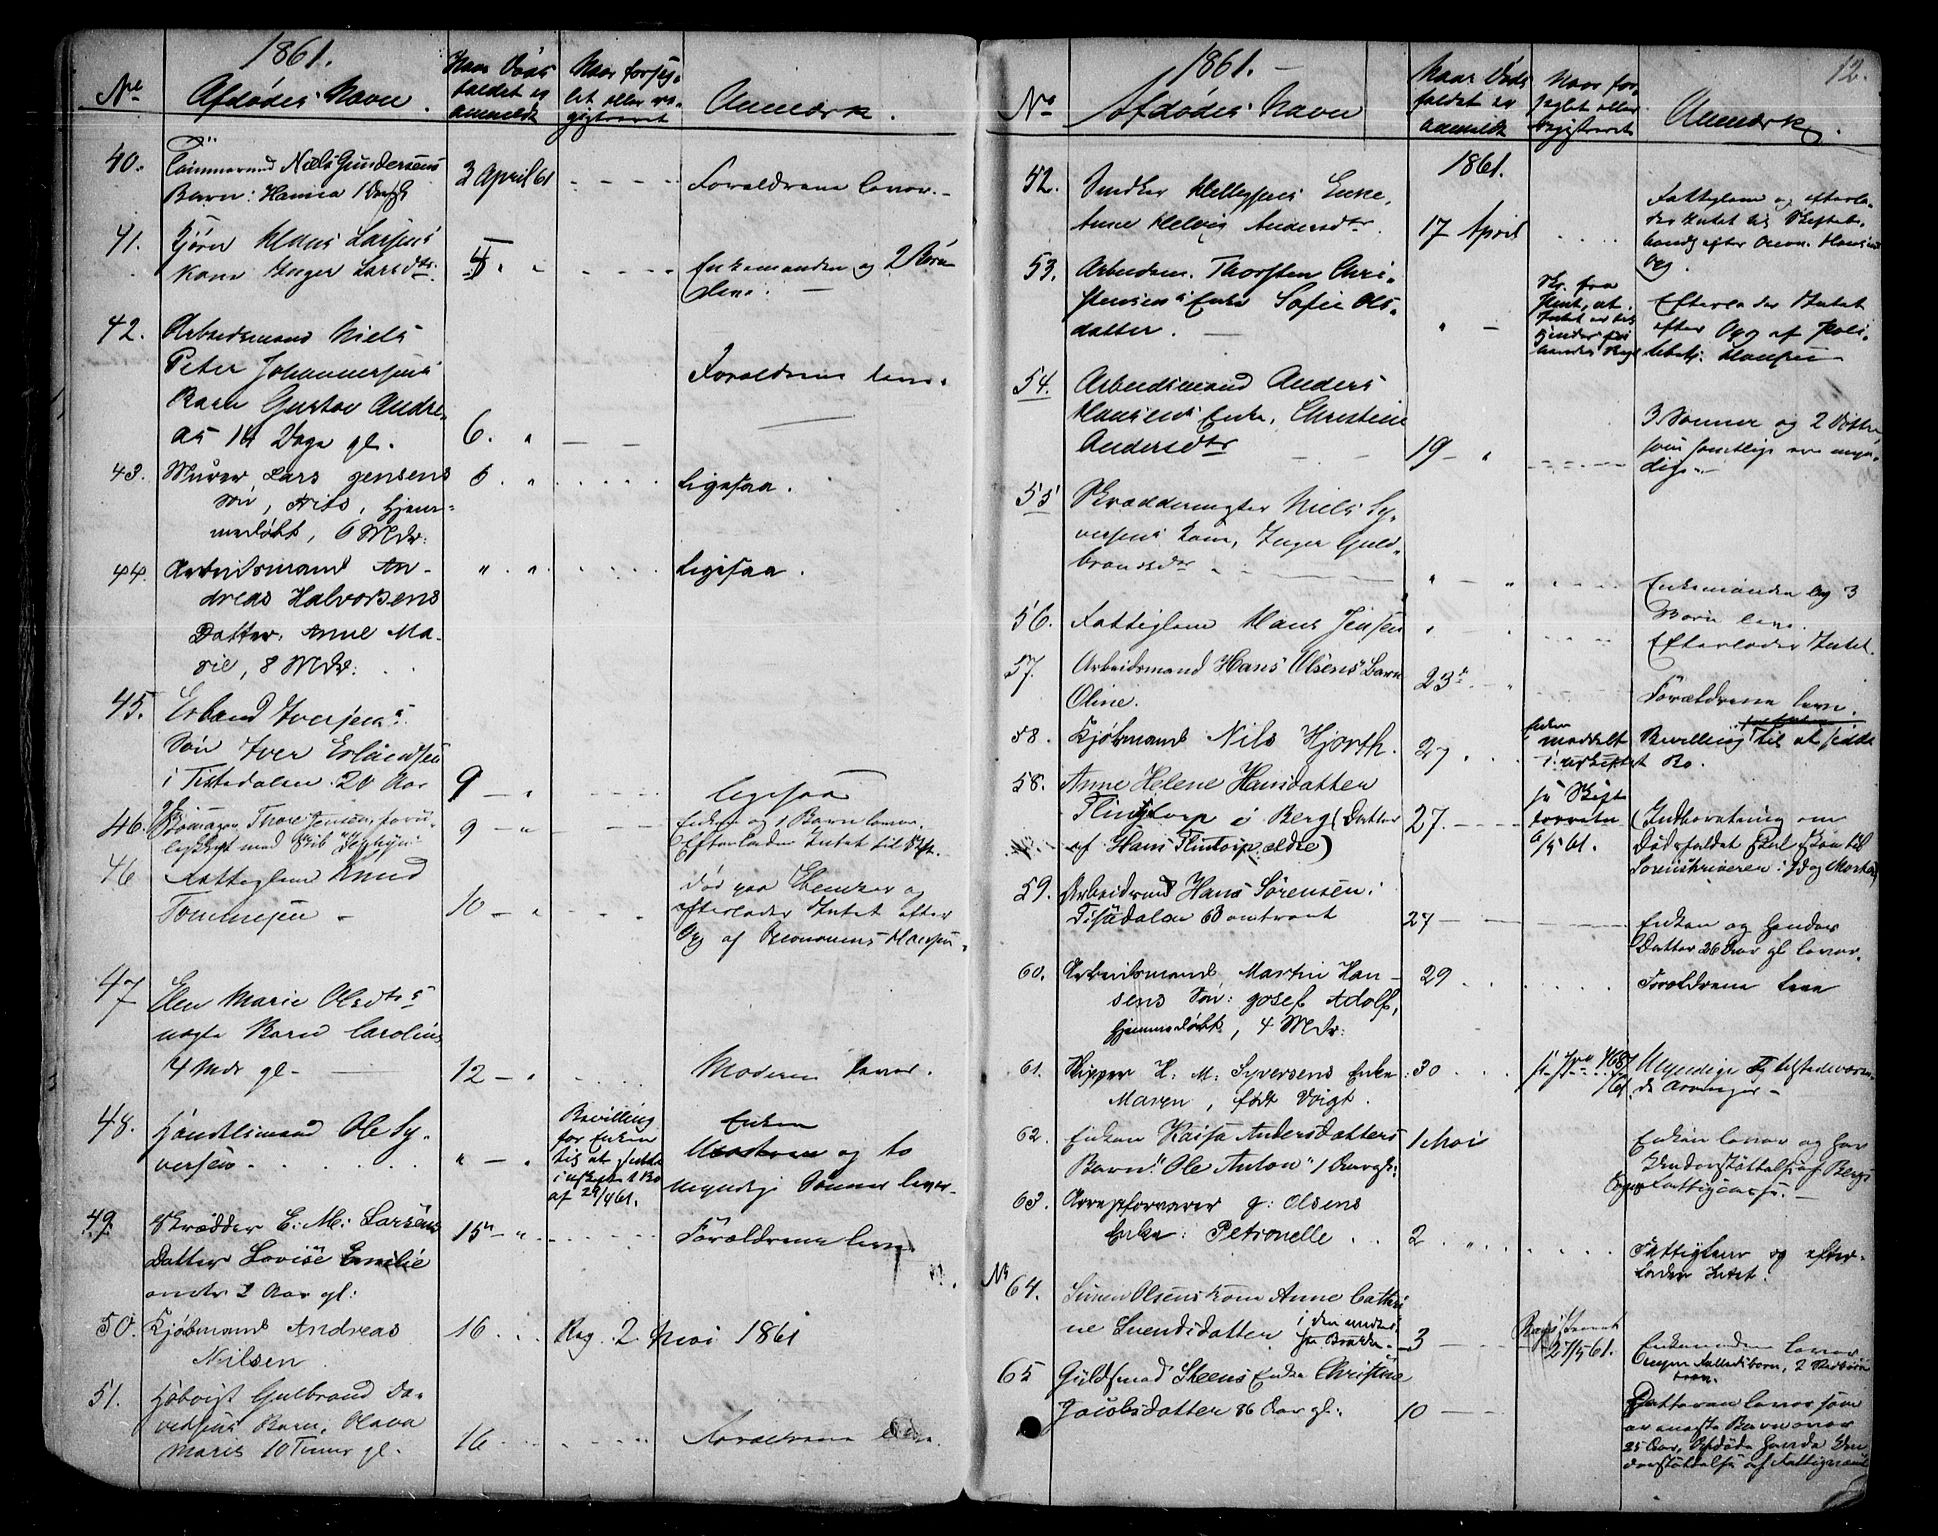 1861.
No
Afdødes Navn.
Naar Døds
faldet er
anmeldt
Naar forseg
let eller re
gistreret
Anmærk.
40. Tømmermd Niels Gundersens
Barn: Hanna 1 Dag gl
3 April 61
Forældrene lever.
41. Bjørn Klaus Larsens
Kone Inger Larsdtr
Enkemanden og 2 Børn
leve.
42. Arbeidsmand Niels
Peter Johannesens
Barn Gustav Andre-
as 14 Dage gl.
6. "
Forældrene leve.
43. Murer Lars Jensens
Søn, Nils, hjem-
medøbt, 6 Mdr:
6. "
Ligesaa.
44. Arbeidsmand An-
dreas Halvorsens
Datter, Anne Ma-
rie, 8 Mdr:
" "
Ligesaa.
45. Erland Iversens
Søn Iver Erlandsen
i Tistedalen 20 Aar
9 - "
ligesaa
46. Thore Jensen, foru-
lykket med Skib
9 - "
Enken og 1 Barn lever.
Efterlader Intet til Skifte.
46 Fattiglem Knud
Tommesen -
10 - "
død paa
efterlader Intet efter
Opg af Oeconomus Hansen.
47 Elen Marie Olsdtrs
uægte Barn Carolius
4 Mdr gl -
12 - "
Moderen lever.
48. Handelsmand Ole Sy-
versen
" - "
Bevilling
for Enken
til at sidde
i uskiftet Bo
af 29/4 61.
Enken
og to
myndige Sønner lever.
49. Skrædder E: M: Larsens
Datter Lovise Emilie
omtr 2 Aar gl:
15 - "
Forældrene leve
50. Kjøbmand Andreas
Nilsen
16
Reg. 2 Mai 1861
51. Gulbrand Da-
vidsens Barn, Olava
Marie 10 Timer gl.
16
Forældrene leve.
1861. -
12.
No
Afdødes Navn
Naar Døds
faldet er
anmeldt
Naar for
seglet eller
registreret
Anmærk.
1861.
52. Snedker Enke,
Anne Helvig Andersdtr.
17 April
Fattiglem og efterla-
der Intet til Skiftebe-
handl efter
Opg.
53. Arbeidsm. Thorsten Chri-
stensens Enke Sofie Ols-
datter.
" -
Intet er
Efterlader Intet
efter Opg af Poli-
tibetj. Hansen
54. Arbeidsmand Anders
Hansens Enke, Christine
Andersdtr
19 - "
3 Sønner og 2 Døttre,
som samtlige ere myn-
dige.
55 Skræddermester Niels Sy-
versens Kone, Inger Guld-
brandsdtr
" - "
Enkemanden og 3
Børn leve.
56. Fattiglem Hans Jensen
"
Efterlader Intet.
57. Arbeidsmand Hans Olsens Barn
Oline.
23de - "
Forældrene leve.
58. Kjøbmand Nils Hjorth.
27
Enken
meddelt
i uskiftet Bo.
Bevilling til at sidde
58. Anne Helene Hansdatter
Flintorp i Berg (Datter
af Hans Flintorp ældre)
27. -
se Skift
6/5 61.
(Indberetning om
Dødsfaldet
Sorenskriveren i Id og Marker)
59. Arbeidsmd Hans Sørensen i
Tistedalen 63 omtrent
27 -
Enken og hendes
Datter 26 Aar gl lever.
60. Arbeidsmand Martin Han-
sens Søn: Josef Adolf,
hjemmedøbt, 4 Mdr:
29
Forældrene leve
61. Skipper H. M: Syversens Enke
Maren, født Voigt.
30
Myndige Tilstedeværen-
de Arvinger -
62. Enken Kaisa Andersdatters
Barn "Ole Anton" 1 Aar gl:
1 Mai
Enken lever og har
Understøttelse af Bergs
Fattigcasse. -
63. Arrestforvarer G: Olsens
Enke: Petronelle
2 "
Fattiglem og efter-
lader Intet.
No
64. Simen Olsens Kone Anne Cathri
ne Svendsdatter i
3
27/5 61.
Enkemanden lever
65 Guldsmed Steens Enke Christine
Jacobsdatter 86 Aar gl:
10 -
Datteren lever som
er eneste Barn over
25 Aar, Afdøde havde Un
derstøttelse af Fattigvæsnet